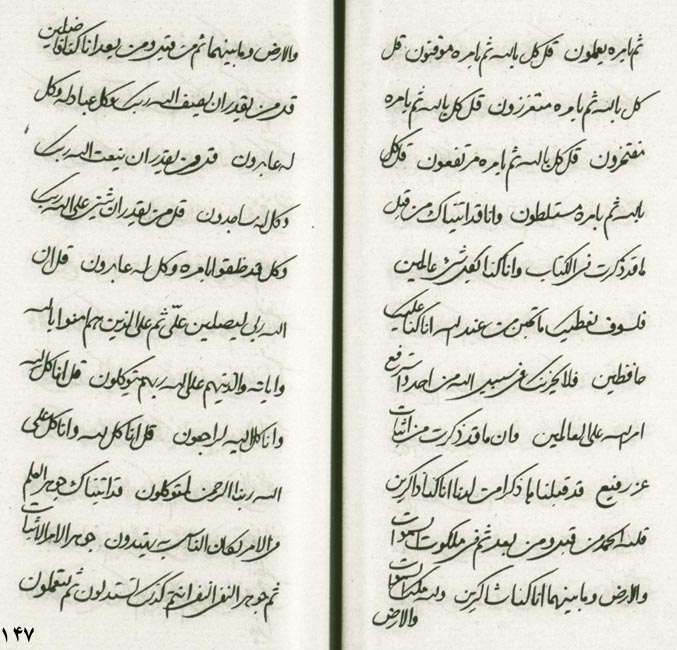 ثم بامره يعملون قل كل بالله ثم بامره موقنون قل
كل بالله ثم بامره متعززون قل كل بالله ثم بامره
مفتخرون قل كل بالله ثم بامره مرتفعون قل كل
بالله ثم بامره متسلطون وانا قد اتيناك من قبل
ما قد ذكرت فى الكتاب وانا كنا بكل شىء عالمين
فلسوف نعطينك ما تحبن من عند الله انا كنا عليه
حافظين فلا تحزنك فى سبيل الله من احد وان ترفع
امر الله على العالمين وان ما قد ذكرت من اثبات
عز رفيع قد قبلنا ما ذكرت من لدنا انا كنا ذاكرين
فلله الحمد من قبل ومن بعد ثم فى ملكوت السموات
والارض وما بينهما انا كنا شاكرين وله ملك السموات
والارض
والارض وما بينهما ثم من قبل ومن بعد انا كنا فاضلين
قل من يقدر ان يصف الله ربك وكل عباد له وكل
له عابدون قل من يقدر ان ينعت الله ربك
وكل له ساجدون قل من يقدر ان يثنى على الله ربك
وكل قد خلقوا بامره وكل له عابدون قل ان
الله ربى ليصلين علّى ثم على الذين هم امنوا بالله
واياته والذينهم على الله ربهم يتوكلون قل انا كل لله
وانا كل اليه لراجعون قل انا كل لله وانا كل على
الله ربنا الرحمن لمتوكلون قد اتيناك جوهر العلم
فى الامر لكان الناس به يهتدون جوهر الامر الاثبات
ثم جوهر النفى النفى انتم كذلك تستدلون ثم لتعملون
۱۴۷